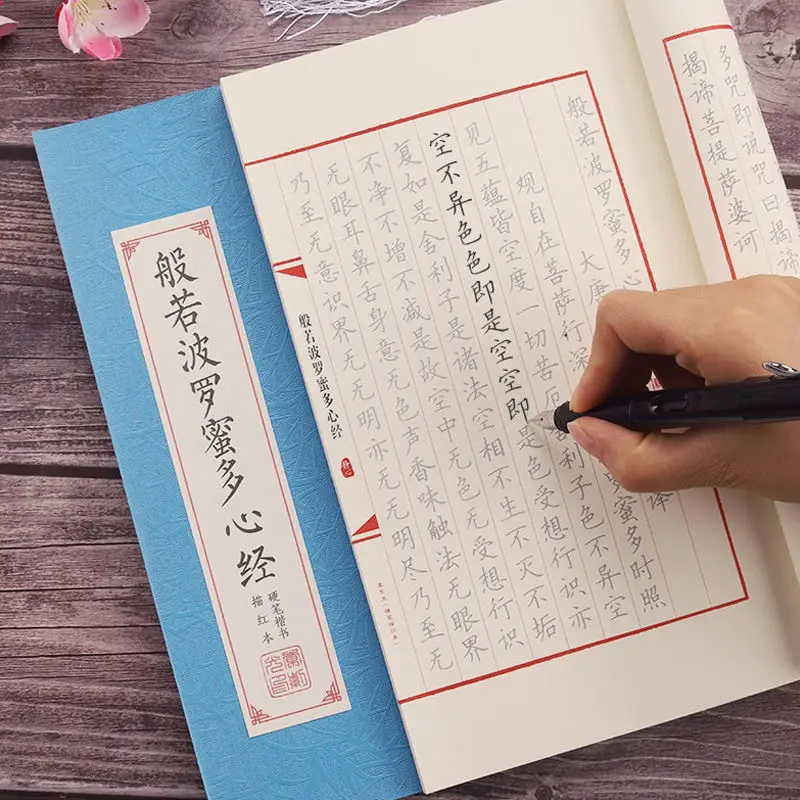 多咒即说咒曰揭谛
揭谛菩提萨婆诃
般若波罗蜜多心
大唐 译
观自在菩萨行深 罗蜜多时照
见五蕴皆空度一切苦厄 利子色不异空
空不异色色即是空空即是色受想行识亦
复如是舍利子是诸法空相不生不灭不垢
不净不增不减是故空中无色无受想行识
无眼耳鼻舌身意无色声香味触法无眼界
乃至无意识界无无明亦无无明尽乃至无
般若波罗蜜多心经
静心
般若波罗蜜多心经
硬笔楷书
描红本